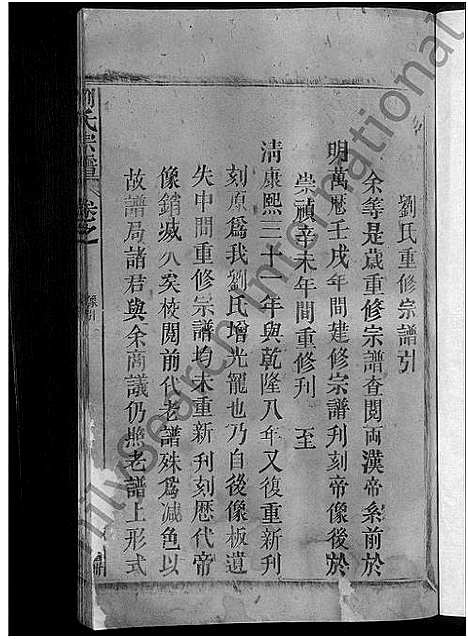 劉氏重修宗譜引
余等是歲重修宗譜查閱兩漢帝系前於
明萬厯壬戌年間建修宗譜刋刻帝像後於
崇禎辛未年間重修刋　至
清康熙三十一年與乾隆八年又復重新刋
刻原爲我劉氏增光寵也乃自後像板遺
失中間重修宗譜均未重新刋刻厯代帝
像銷滅久矣校閱前代老譜殊爲减色以
故譜局諸君與余商議仍照老譜上形式
劉氏宗譜
卷之